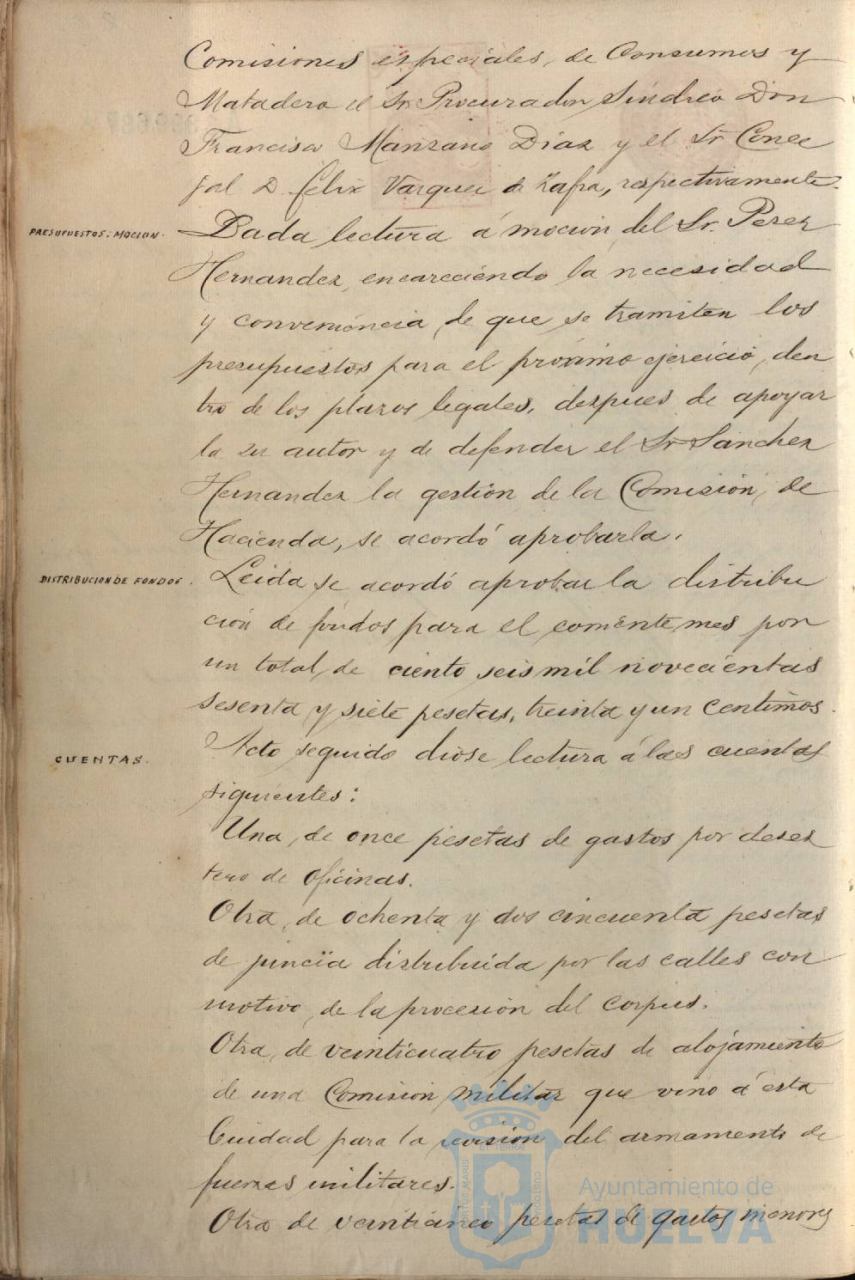 Comisiones especiales, de Consumos y
Matadero el Sr. Procurador Síndico Don
Francisco Manzano Díaz y el Sr Conce
jal D. Félix Vazquez de Zafra, respectivamente.
PRESUPUESTOS: MOCION.
Dada lectura á moción del Sr. Perez
Hernandez, encareciendo la necesidad
y conveniencia, de que se tramiten los
presupuestos para el próximo ejercicio, den
tro de los plazos legales, despues de apoyar
la su autor y de defender el Sr Sanchez
Hernandez la gestión de la Comisión, de
Hacienda, se acordó aprobarla.
DISTRIBUCION DE FONDOS.
Leida se acordó aprobar la distribu
ción de fondos para el corriente mes por
un total, de ciento seis mil novecientas
sesenta y siete pesetas, treinta y un centimos.
CUENTAS.
Acto seguido diose lectura á las cuentas
siguientes:
Una, de once pesetas de gastos por deses
tero de oficinas.
Otra, de ochenta y dos cincuenta pesetas
de juncia distribuida por las calles con
motivo, de la procesión del Corpus.
Otra, de veinticuatro pesetas de alojamiento
de una Comision militar que vino á esta
Ciudad para la revision del armamento de
fuerzas militares.
Otra de veinticinco pesetas de gastos menores
Ayuntamiento de
HUELVA